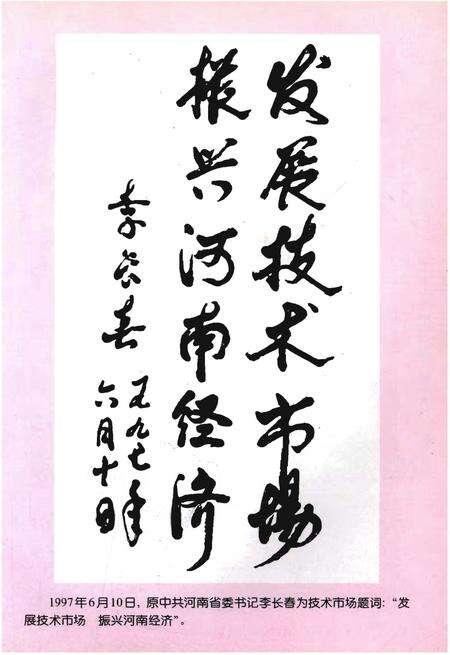 发展技术市场
振兴河南经济
李长春
一九九七年
六月十日
1997年6月10日，原中共河南省委书记李长春为技术市场题词：“发
展技术市场　振兴河南经济”。